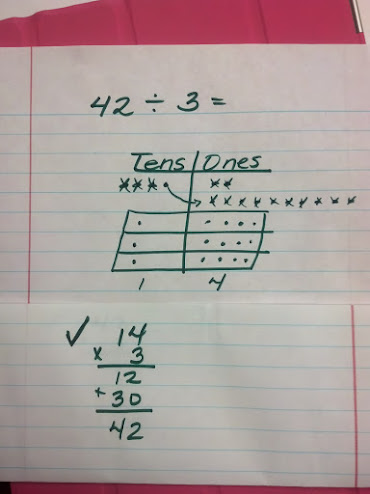 42 ÷ 3 =
Tens Ones
1 4
✓ 14
x 3
12
+ 30
42